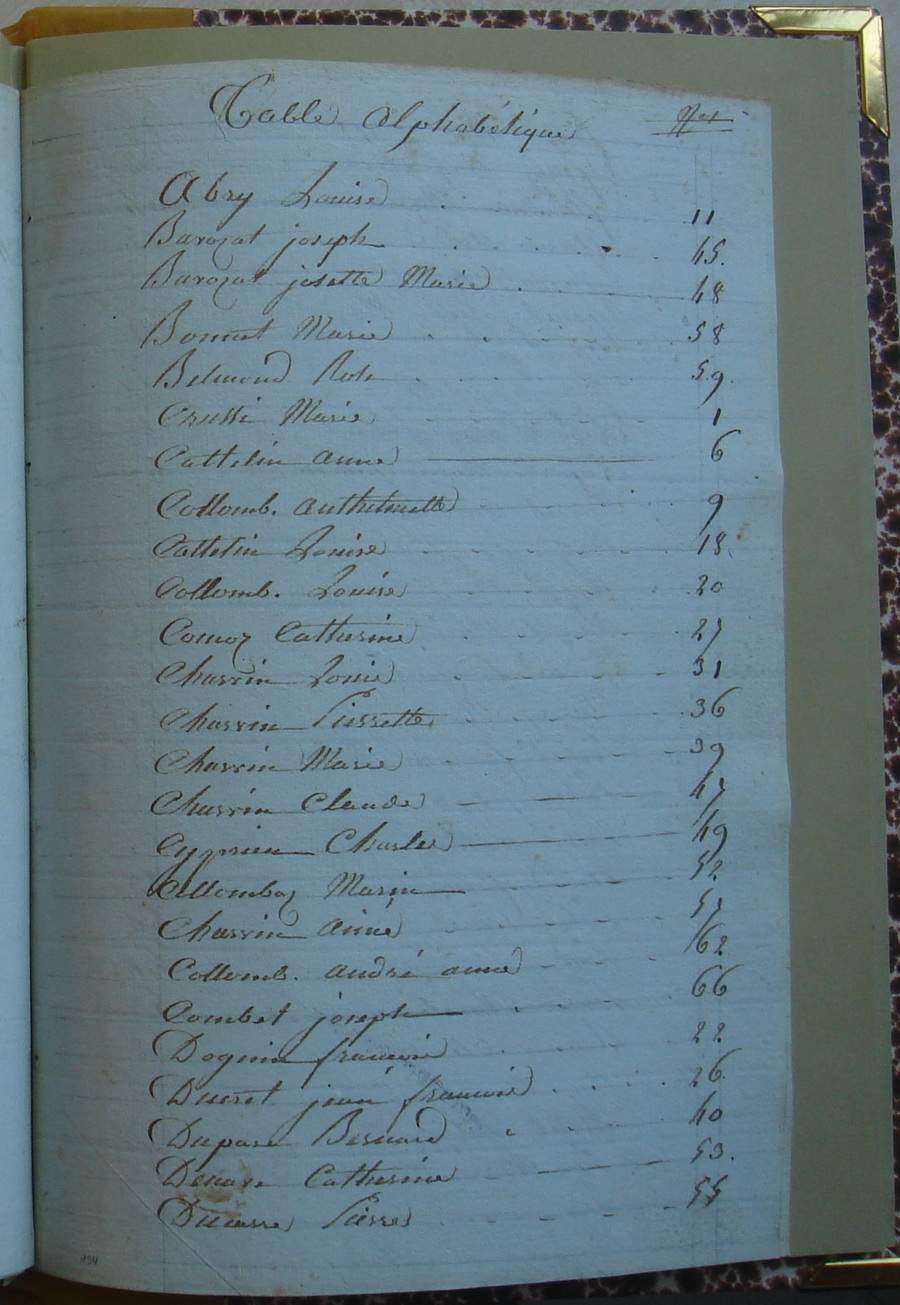 Table alphabétique Nos
Abry Louise 11
Barozat joseph 45.
Barozat josette Marie 48
Bonnet Marie 58
Belmond Rose 59.
Crussi Marie 1
Cattelin anne 6
Collomb. anthelmette 9
Cattelin Louise 18
Collomb. Louise 20
Camoz Catherine 27
Charrin Louis 31
Charrin Pierrette 36
Charrin Marie 39
Charrin Claude 47
Cyprien Charles 49
Collombaz Marin 52
Charrin aimé 57
Collomb. andré anne 62
Combet joseph 66
Doguin francois 22
Ducret jean francois 26
Duparc Bernard 40
Catherine 53.
Pierre 55